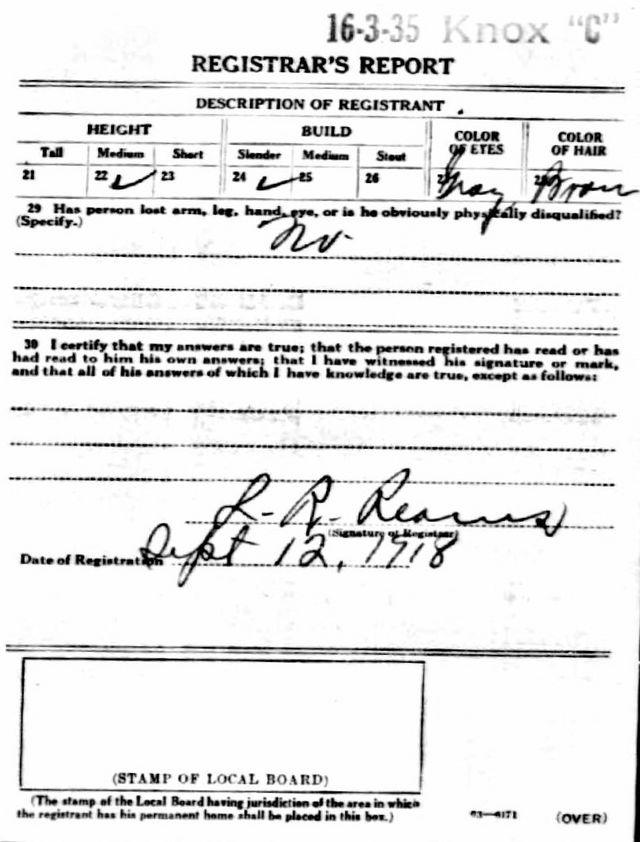 16-3-35 Knox "C"
REGISTRAR'S REPORT
DESCRIPTION OF REGISTRANT
HEIGHT BUILD COLOR OF EYES COLOR OF HAIR
Tall Medium Short Slender Medium Stout
21 22 ✓ 23 24 ✓ 25 26 27 Gray 28 Brown
29 Has person lost arm, leg, hand, eye, or is he obviously physically disqualified?
(Specify.) No
30 I certify that my answers are true; that the person registered has read or has
had read to him his own answers; that I have witnessed his signature or mark,
and that all of his answers of which I have knowledge are true, except as follows:
R. Reams
(Signature of Registrar)
Date of Registration Sept 12, 1918
(STAMP OF LOCAL BOARD)
(The stamp of the Local Board having jurisdiction of the area in which
the registrant has his permanent home shall be placed in this box.)
03—6171 (OVER)